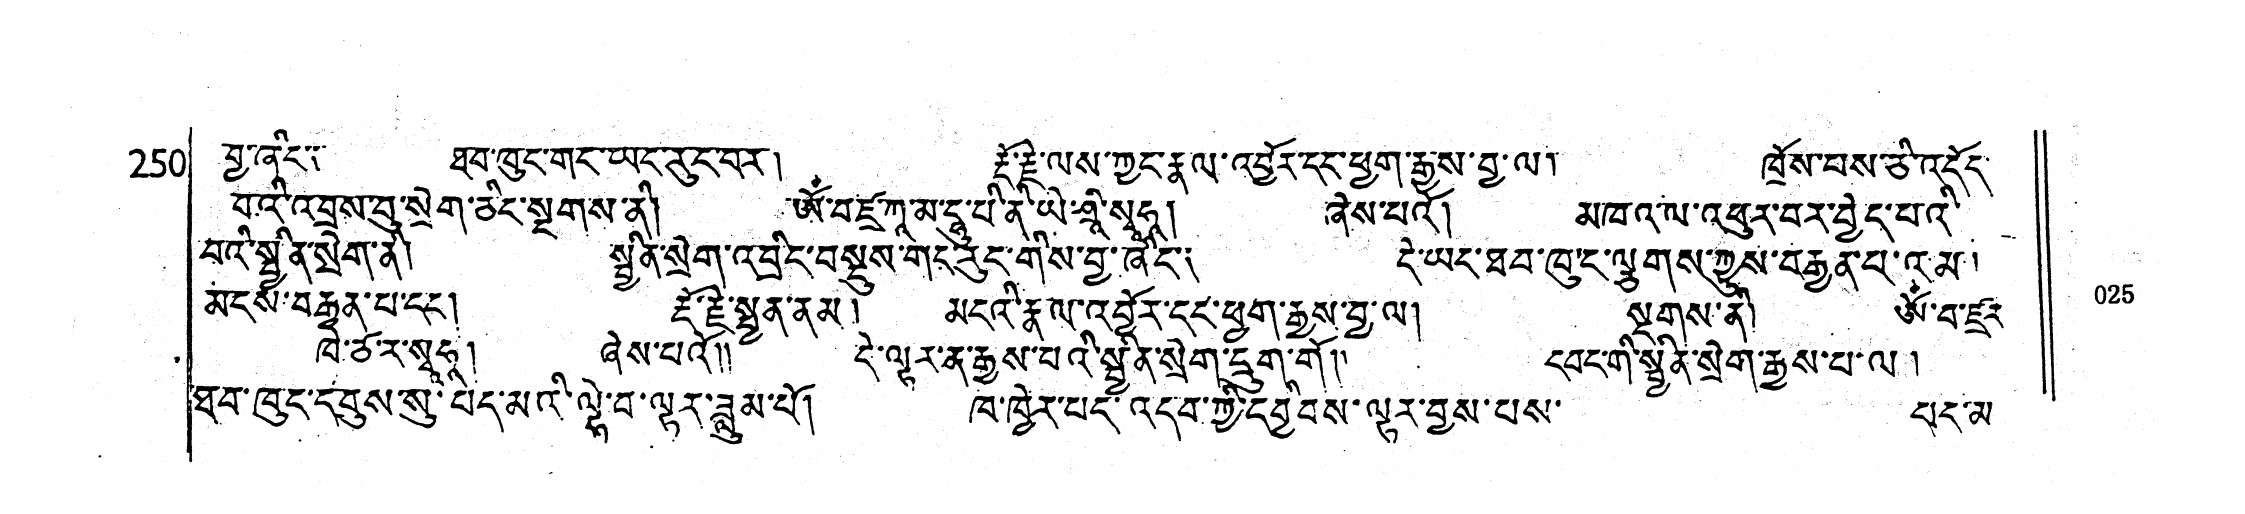 250 བྱ་ཞིང་༔ ཐབ་ཁུང་གང་ཡང་རུང་བར། རྡོ་རྗེ་ལས་ཀྱང་རྣལ་འབྱོར་དང་ཕྱག་རྒྱས་བྱ་ལ། ཁྲོས་པས་ཅི་འདོད་
བའི་འབྲས་བུ་སྲེག་ཅིང་སྔགས་ནི། ཨོཾ་བཛྲ་ཀཱ་མ་དཱ་པ་ནི་ཡེ་ཤྲཱི་སྭཱཧཱ། ཞེས་པའོ། མཁའ་ལ་འཕུར་བར་བྱེད་པའི
བའི་སྦྱིན་སྲེག་ནི། སྦྱིན་སྲེག་འབྲིང་བསྡུས་གང་རུང་གིས་བྱ་ཞིང་༔ དེ་ཡང་ཐབ་ཁུང་ལྕགས་ཀྱུས་བརྒྱན་པ་འམ།
མདས་བརྒྱན་པ་དང༌། རྡོ་རྗེ་སྤྱན་ནམ། མདའི་རྣལ་འབྱོར་དང་ཕྱག་རྒྱས་བྱ་ལ། སྔགས་ནི། ཨོཾ་བཛྲ
ཁེ་ཙོ་ར་སྭཱཧཱ། ཞེས་པའོ།། དེ་ལྟར་ན་རྒྱས་པའི་སྦྱིན་སྲེག་དྲུག་གོ།། དབང་གི་སྦྱིན་སྲེག་རྒྱས་པ་ལ།
ཐབ་ཁུང་དབུས་སུ་པད་མའི་ལྟེ་བ་ལྟར་ཟླུམ་པོ། ཁ་ཁྱེར་པད་འདབ་ཀྱི་དབྱིབས་ལྟར་བྱས་པས་ པད་མ
025